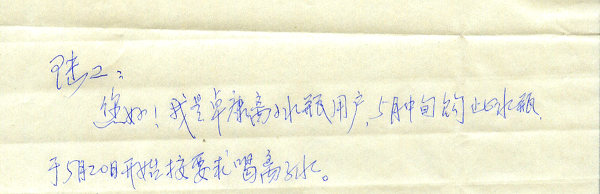 工：
您好！我是卓康离子水瓶用户，5月中旬购此水瓶，
于5月20日开始按要求喝离子水。